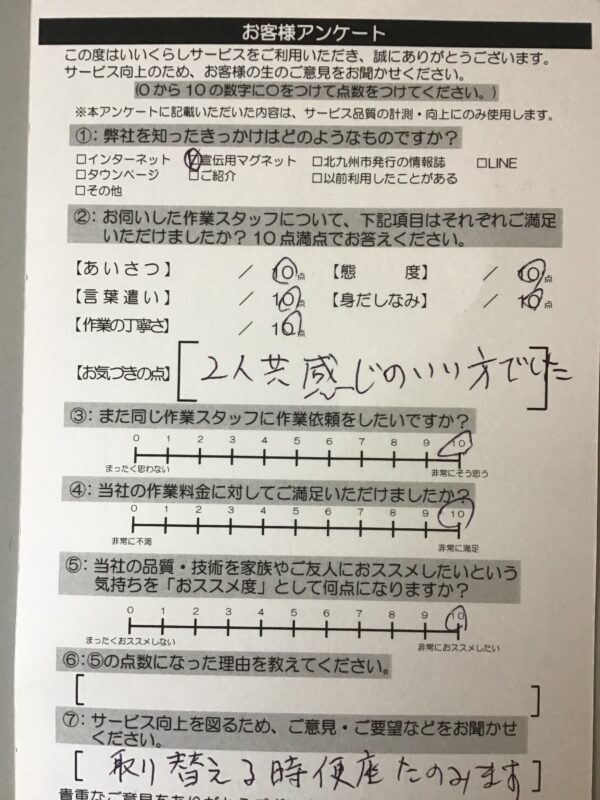 お客様アンケート
この度はいいくらしサービスをご利用いただき、誠にありがとうございます。
サービス向上のため、お客様の生のご意見をお聞かせください。
(0から10の数字に○をつけて点数をつけてください。)
※本アンケートに記載いただいた内容は、サービス品質の計測・向上にのみ使用します。
①：弊社を知ったきっかけはどのようなものですか？
□インターネット ☑宣伝用マグネット □北九州市発行の情報誌 □LINE
□タウンページ □ご紹介 □以前利用したことがある
□その他
②：お伺いした作業スタッフについて、下記項目はそれぞれご満足
いただけましたか？10点満点でお答えください。
【あいさつ】 / 10点 【態 度】 / 10点
【言葉遣い】 / 10点 【身だしなみ】 / 10点
【作業の丁寧さ】 / 10点
【お気づきの点】 [2人共感じのいい方でした]
③：また同じ作業スタッフに作業依頼をしたいですか？
0 1 2 3 4 5 6 7 8 9 10
まったく思わない 非常にそう思う
④：当社の作業料金に対してご満足いただけましたか？
0 1 2 3 4 5 6 7 8 9 10
非常に不満 非常に満足
⑤：当社の品質・技術を家族やご友人におススメしたいという
気持ちを「おススメ度」として何点になりますか？
0 1 2 3 4 5 6 7 8 9 10
まったくおススメしない 非常におススメしたい
⑥：⑤の点数になった理由を教えてください。
[ ]
⑦：サービス向上を図るため、ご意見・ご要望などをお聞かせ
ください。
[取り替える時便座たのみます]